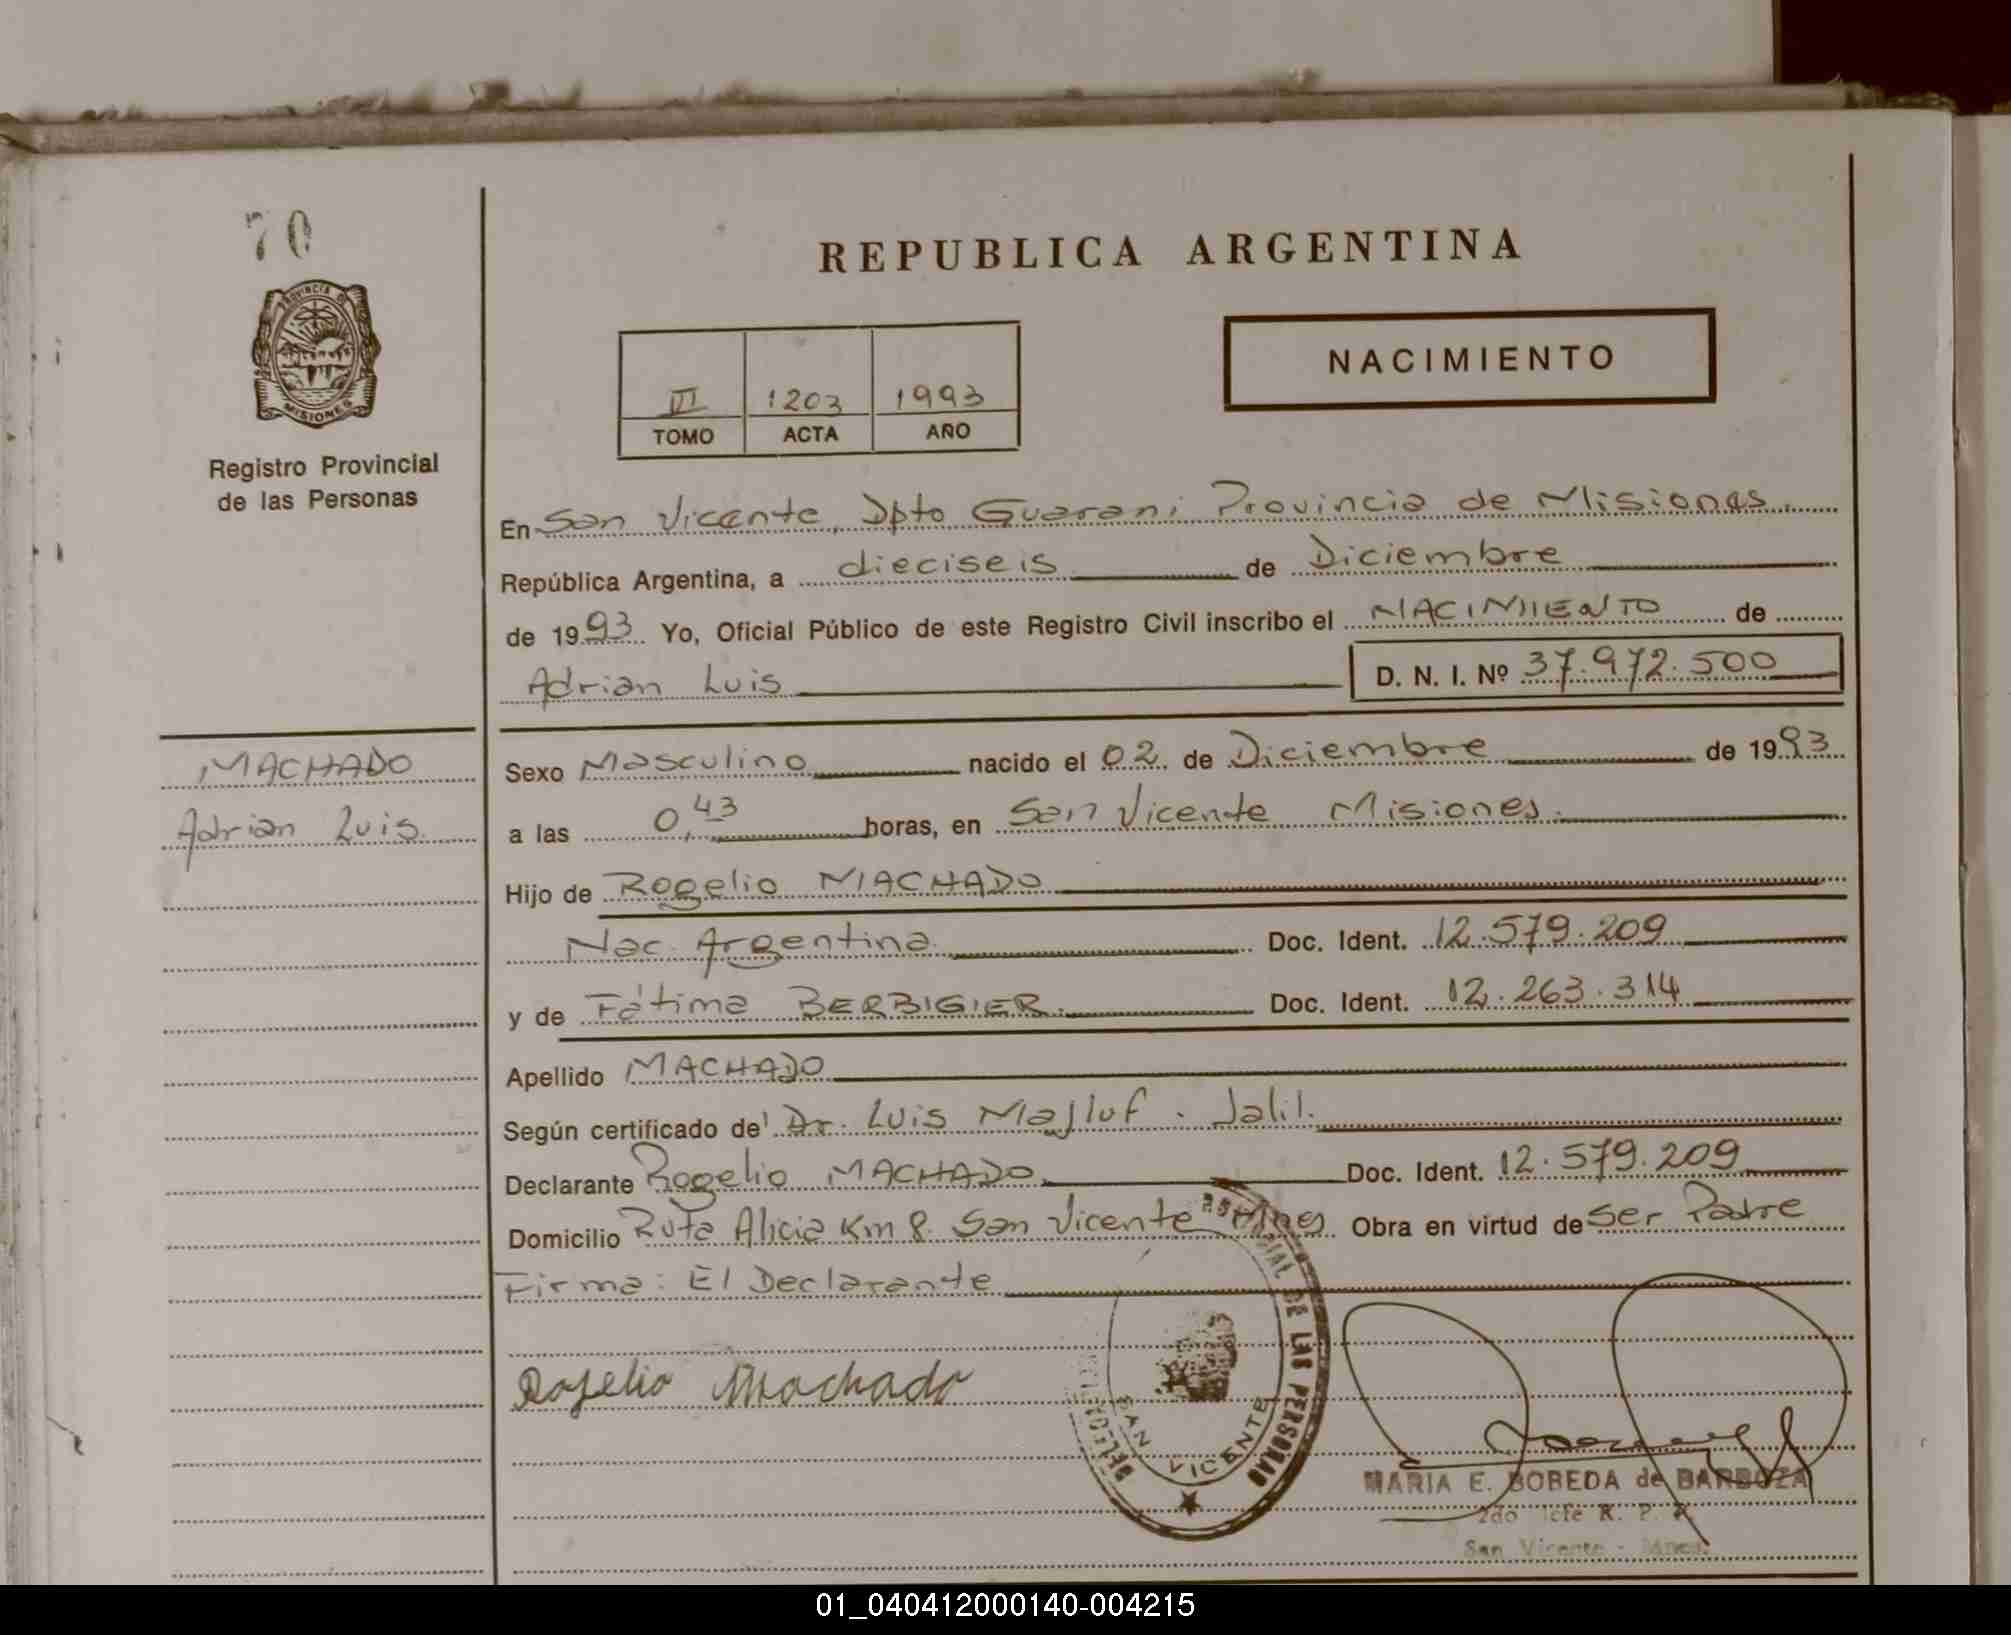 70
REPUBLICA ARGENTINA
PROVINCIA DE
MISIONES
Registro Provincial
de las Personas
NACIMIENTO
1203 1993
TOMO ACTA AÑO
En San Vicente, Dpto Guarani Provincia de Misiones.
República Argentina, a dieciseis de Diciembre
de 1993 Yo, Oficial Público de este Registro Civil inscribo el NACIMIENTO de
Adrian Luis D. N. I. Nº 37.972.500
MACHADO
Adrian Luis.
Sexo Masculino nacido el 02 de Diciembre de 1993
a las 0,43 horas, en San Vicente Misiones.
Hijo de Rogelio MACHADO
Nac. Argentina Doc. Ident. 12.579.209
y de Fátima BERBIGIER. Doc. Ident. 12.263.314
Apellido MACHADO
Según certificado de Dr. Luis Majluf. Jalil.
Declarante Rogelio MACHADO Doc. Ident. 12.579.209
Domicilio Ruta Alicia Km 8. San Vicente Mnes Obra en virtud de ser Padre
Firma: El Declarante
Rogelio Machado
DE LAS PERSONAS
SAN VICENTE
MARIA E. BOBEDA de BARBOZA
2do Jefe R. P. P.
San Vicente - Mnes.
01_040412000140-004215